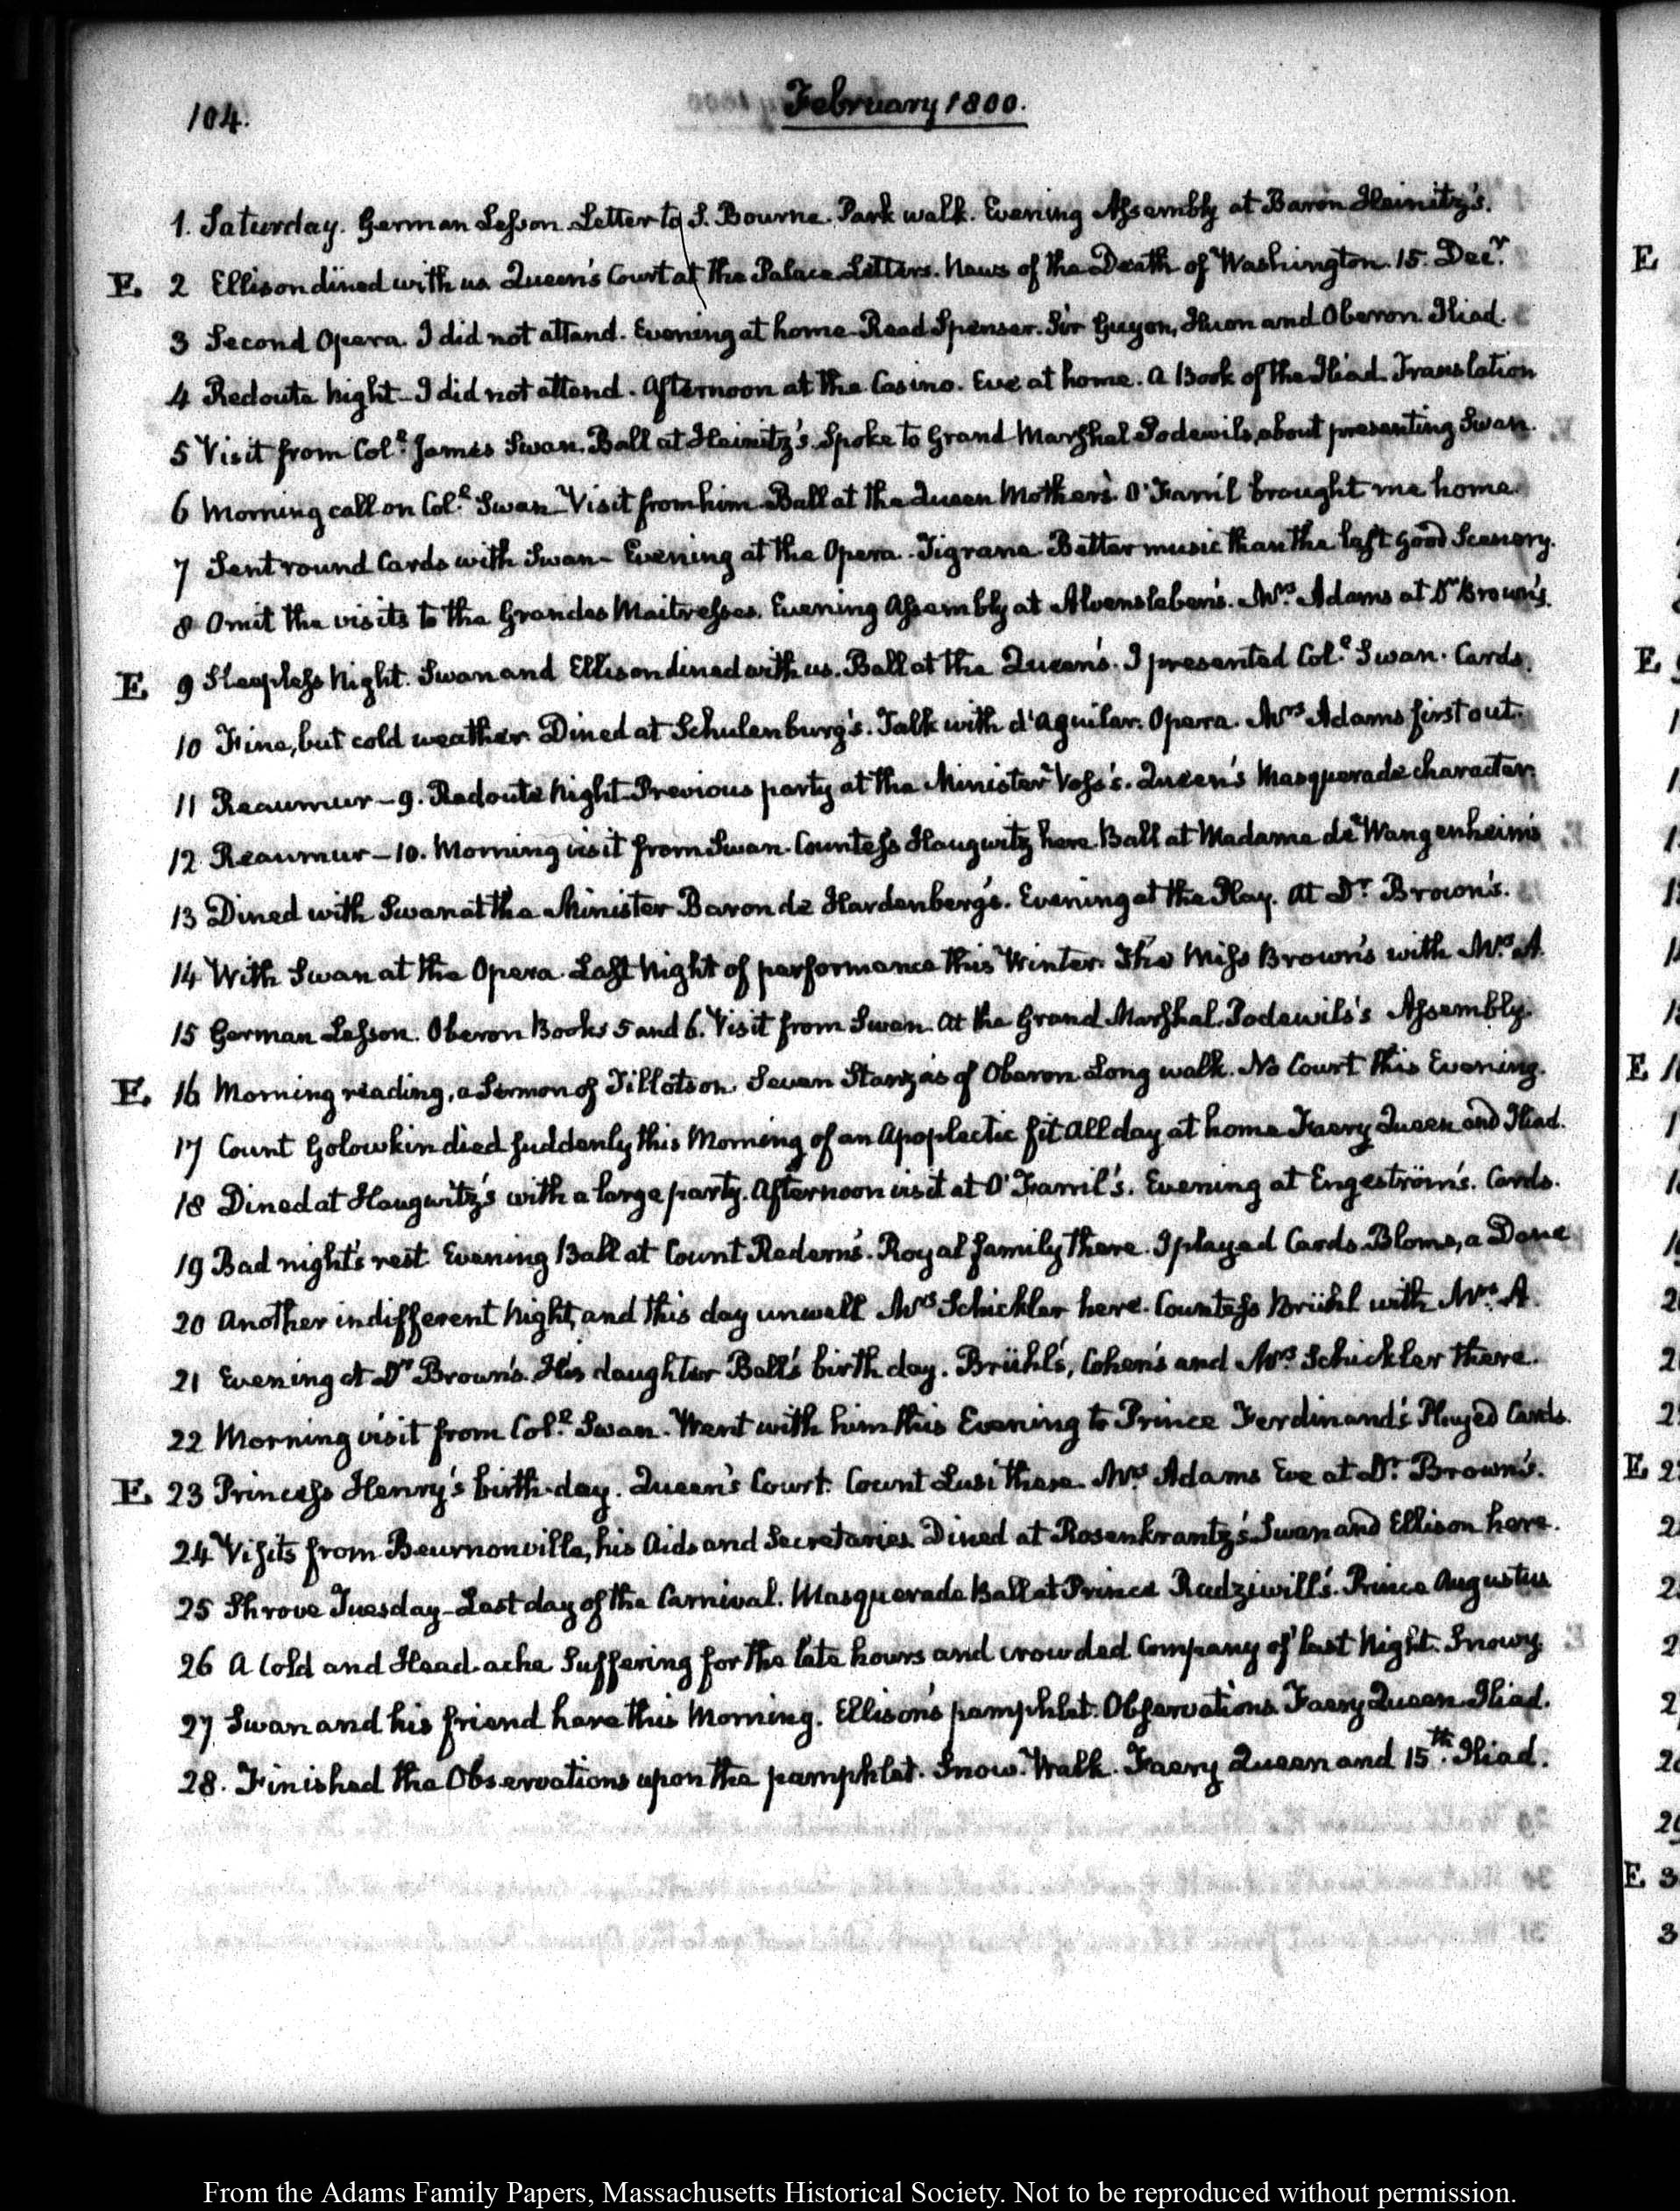 104.
February 1800.
1. Saturday. German Lesson. Letter to S. Bourne. Park walk. Evening Assembly at Baron Heinitz's.
E. 2 Ellison dined with us. Queen's Court at the Palace. Letters. News of the Death of Washington. 15. Decr.
3 Second Opera. I did not attend. Evening at home. Read Spenser. Sir Guyon, Huon and Oberon. Iliad.
4 Redoute Night—I did not attend. Afternoon at the Casino. Eve at home. A Book of the Iliad. Translation
5 Visit from Coll. James Swan. Ball at Heinitz's. Spoke to Grand Marshal Podewils, about presenting Swan.
6 Morning call on Coll. Swan—Visit from him. Ball at the Queen Mother's. O'Farril brought me home.
7 Sent round Cards with Swan—Evening at the Opera. Tigrane. Better music than the last good Scenery.
8 Omit the visits to the Grandes Maitresses. Evening Assembly at Alvensleben's. Mrs. Adams at Dr Brown's.
E. 9 Sleepless Night. Swan and Ellison dined with us. Ball at the Queen's. I presented Coll. Swan. Cards.
10 Fine, but cold weather. Dined at Schulenburg's. Talk with d'Aguilar. Opera. Mrs Adams first out.
11 Reaumur—9. Redoute Night. Previous party at the Minister Voss's. Queen's Masquerade character.
12 Reaumur—10. Morning visit from Swan. Countess Haugwitz here. Ball at Madame de Wangenheim's
13 Dined with Swan at the Minister Baron de Hardenberg's. Evening at the Play. At Dr. Brown's.
14 With Swan at the Opera. Last Night of performance this Winter. The Miss Brown's with Mrs. A.
15 German Lesson. Oberon Books 5 and 6. Visit from Swan. At the Grand Marshal. Podewils's Assembly.
E. 16 Morning reading, a Sermon of Tillotson. Seven Stanzas of Oberon. Long walk. No Court this Evening.
17 Count Golowkin died suddenly this Morning of an Apoplectic fit. All day at home Faery Queen and Iliad.
18 Dined at Haugwitz's with a large party. Afternoon visit at O'Farril's. Evening at Engeström's. Cards.
19 Bad night's rest. Evening Ball at Count Redern's. Royal family there. I played Cards. Blome, a Dane
20 Another indifferent Night, and this day unwell. Mrs Schickler here. Countess Brühl with Mrs. A.
21 Evening at Dr Brown's. His daughter Bell's birth day. Brühl's, Cohen's and Mrs. Schickler there.
22 Morning visit from Coll. Swan. Went with him this Evening to Prince Ferdinand's. Played Cards.
E. 23 Princess Henry's birth-day. Queen's Court. Count Lusi there. Mrs. Adams Eve at Dr. Brown's.
24 Visits from Beurnonville, his Aids and Secretaries. Dined at Rosenkrantz's. Swan and Ellison here.
25 Shrove Tuesday—Last day of the Carnival. Masquerade Ball at Prince Radziwill's. Prince Augustus
26 A Cold and Head-ache Suffering for the late hours and crowded Company of last Night. Snowy.
27 Swan and his friend here this Morning. Ellison's pamphlet. Observations. Faery Queen. Iliad.
28. Finished the Observations upon the pamphlet. Snow. Walk. Faery Queen and 15th. Iliad.
From the Adams Family Papers, Massachusetts Historical Society. Not to be reproduced without permission.